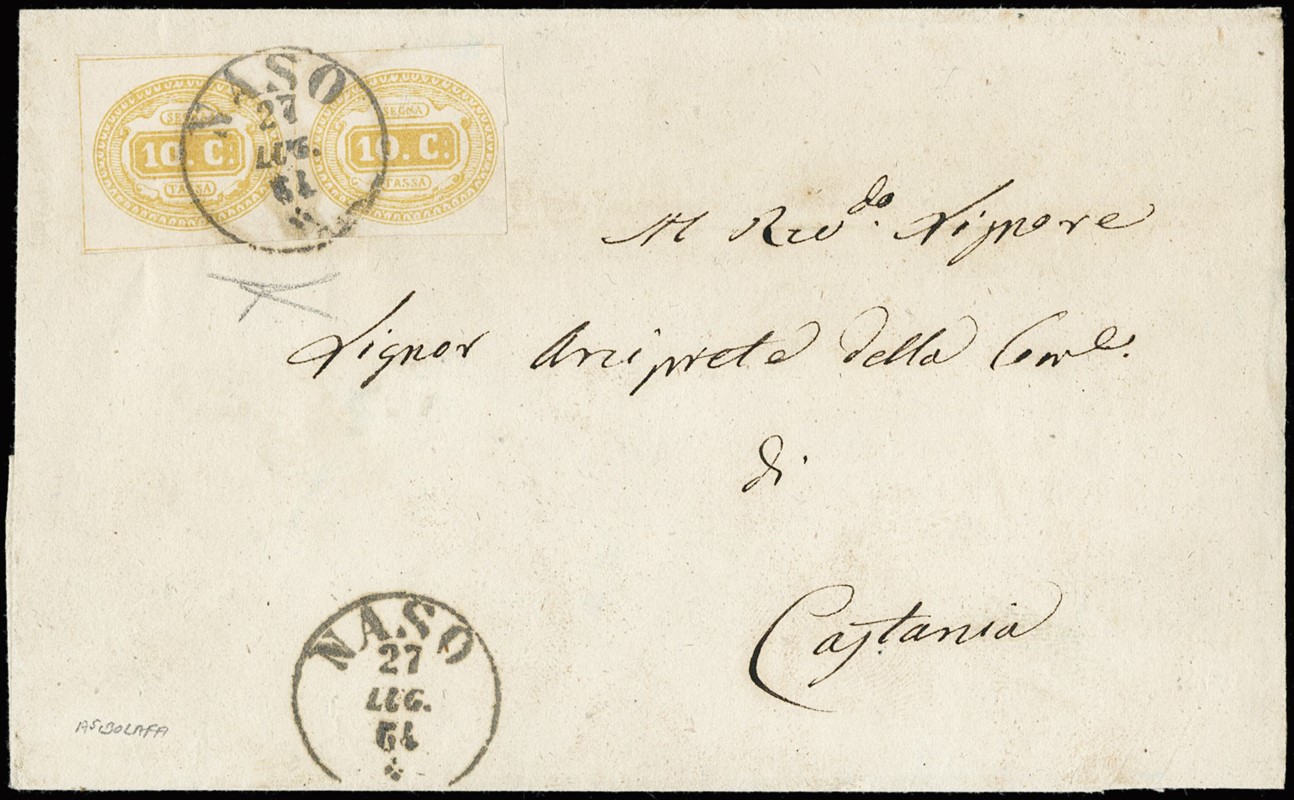 NASO
27
LUG.
64
SEGNA
10. C.
TASSA
SEGNA
10. C.
TASSA
Al Rev.do Signore
Signor Arciprete della
di
Castania
NASO
27
LUG.
64